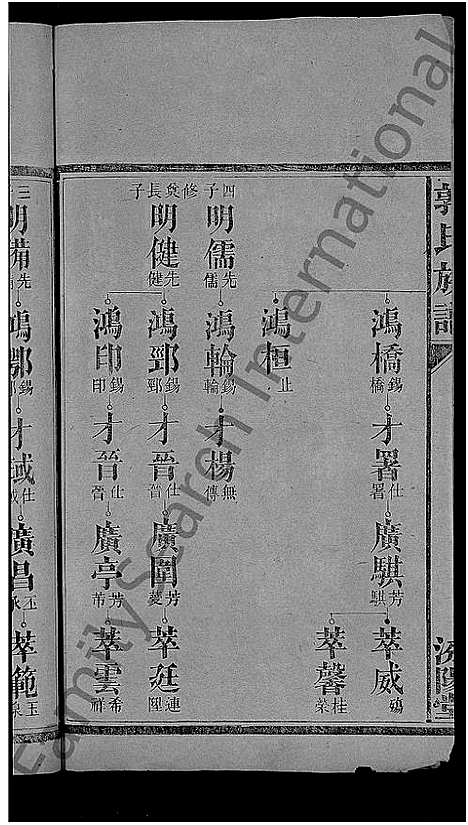 郭氏族譜
汾陽堂
鴻橋 錫橋
才署 仕署
廣騏 芳騏
萃威
萃馨 桂榮
鴻桓 止
四子 明儒 先儒
鴻輪 錫輪
才楊 無傳
修爻長子 明健 先健
鴻郢 錫郢
才晉 仕晉
廣圍 芳菱
萃廷 連陞
鴻印 錫印
才晉 仕晉
廣亭 芳芾
萃雲 希祥
明備 先
鴻鄂 錫
才域 仕
廣昌 丕
萃範 玉
FamilySearch International